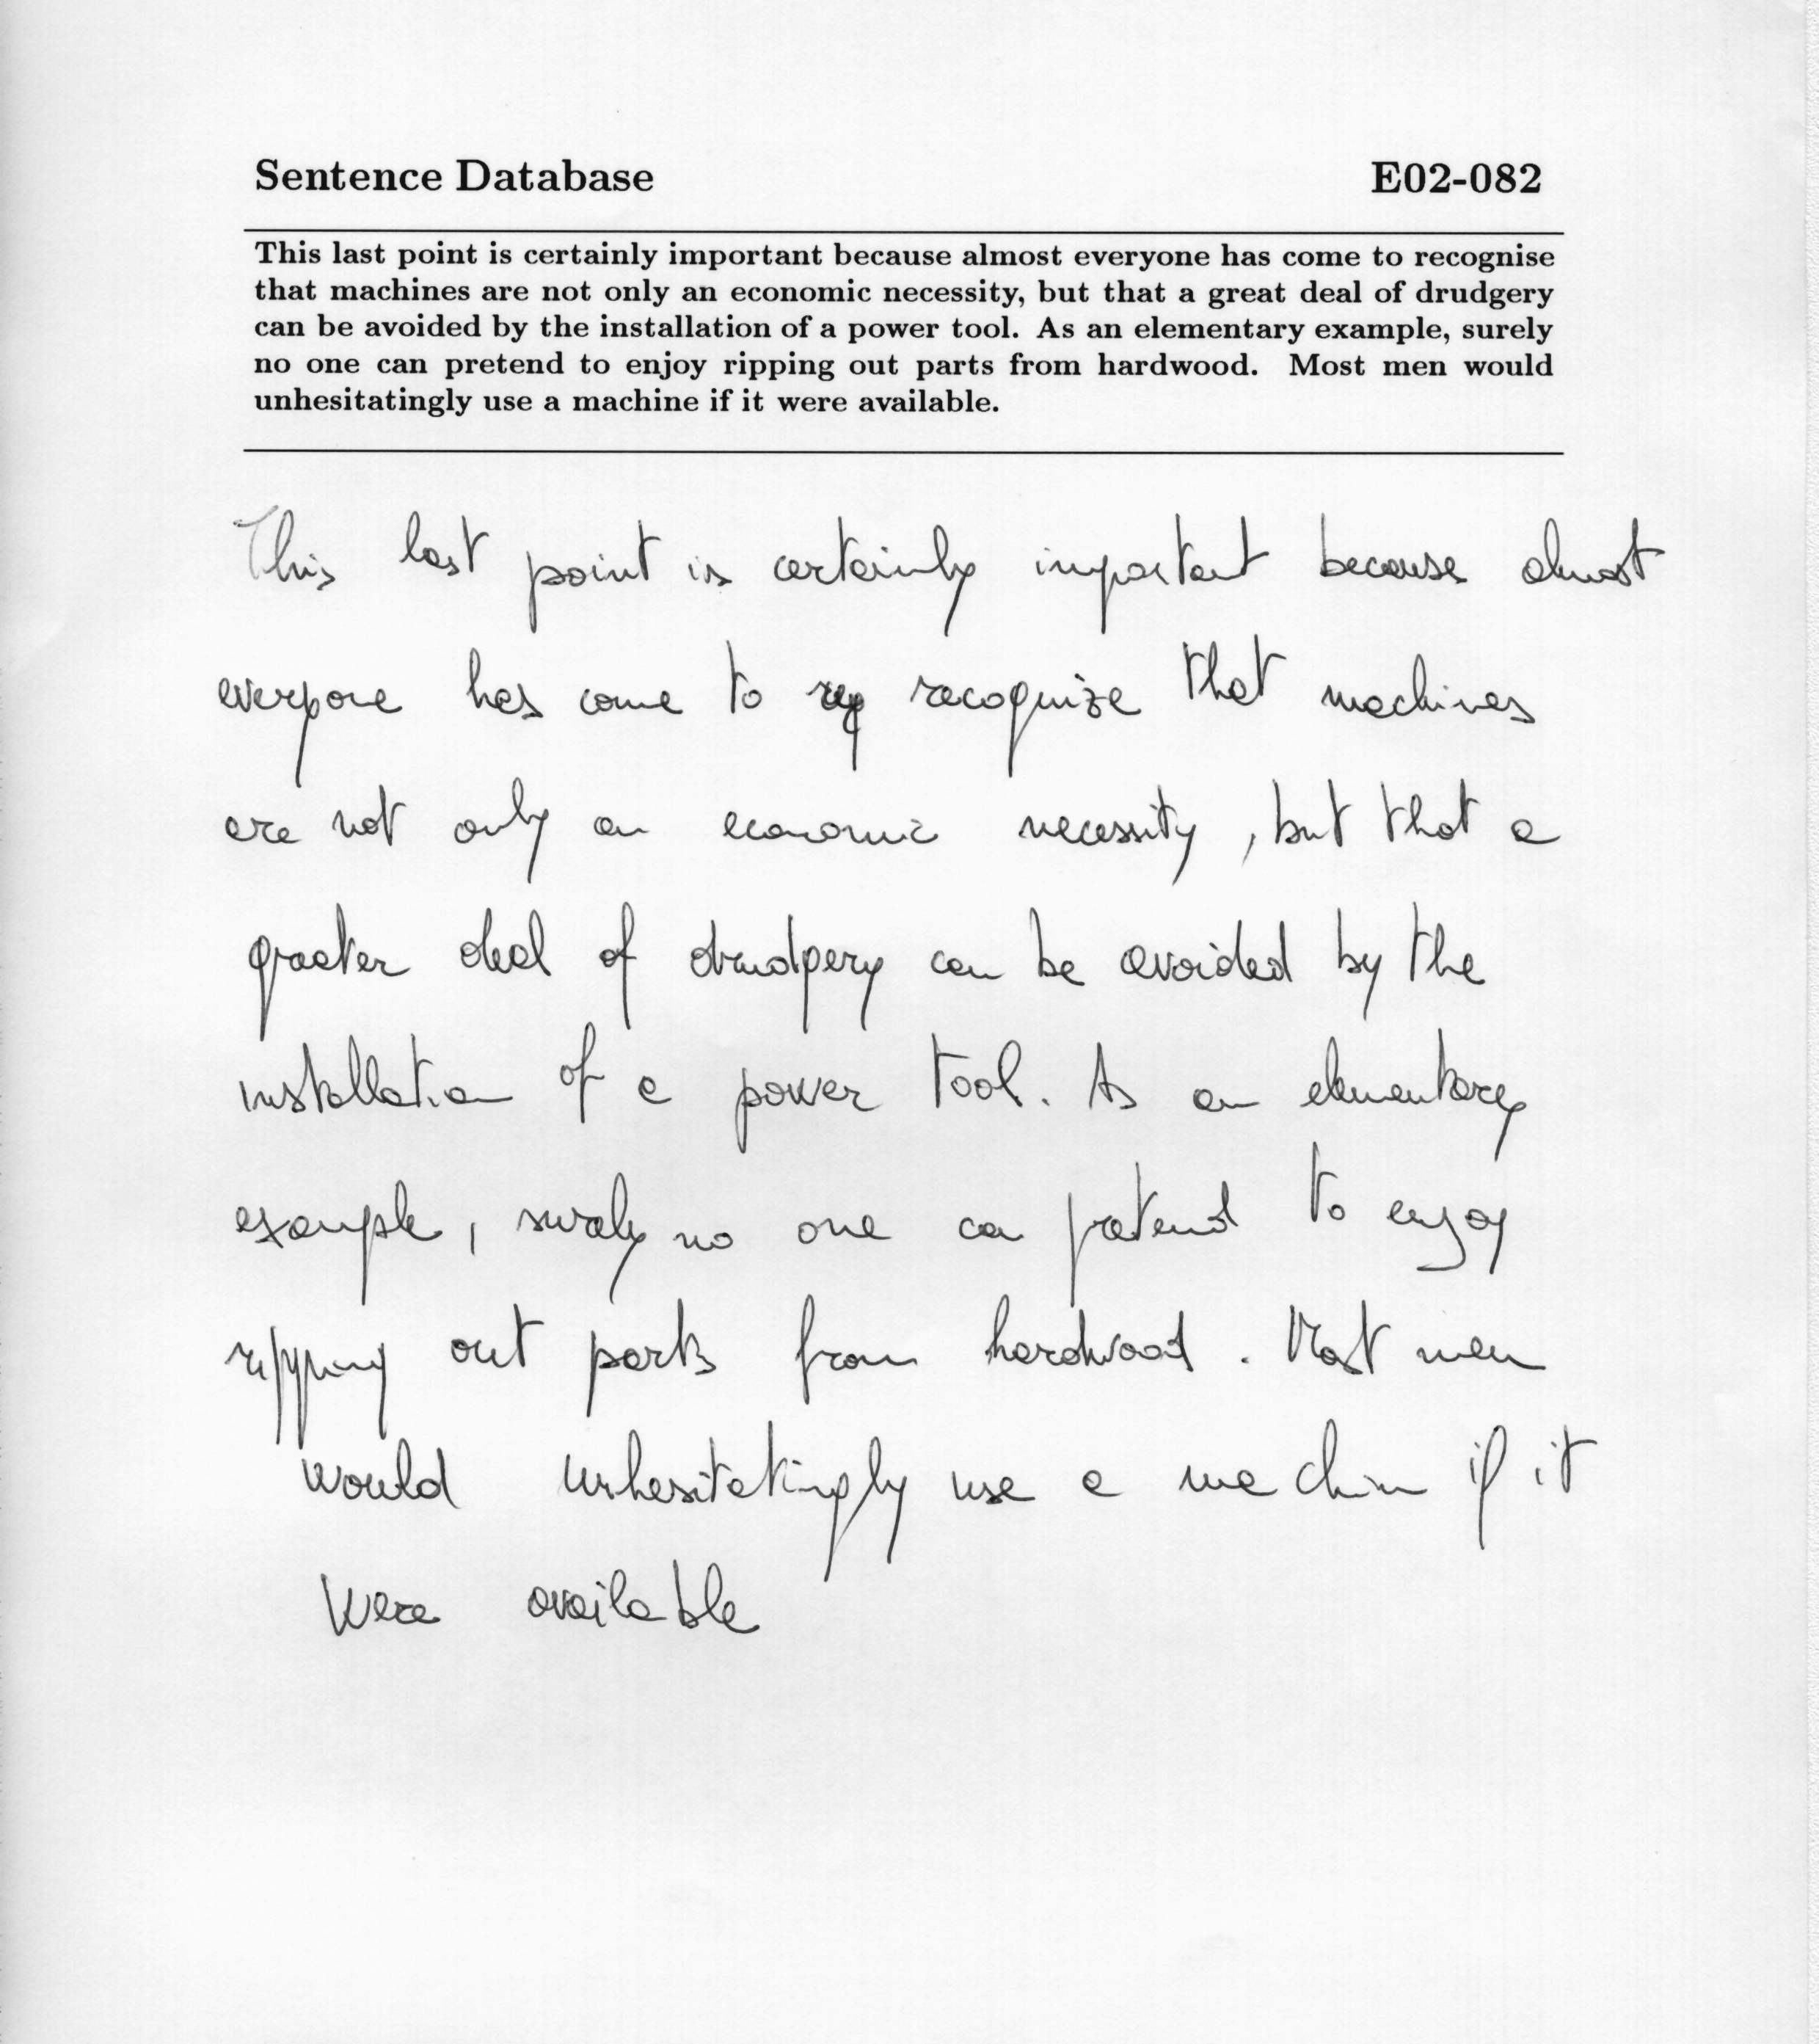 Sentence Database E02-082
This last point is certainly important because almost everyone has come to recognise
that machines are not only an economic necessity, but that a great deal of drudgery
can be avoided by the installation of a power tool. As an elementary example, surely
no one can pretend to enjoy ripping out parts from hardwood. Most men would
unhesitatingly use a machine if it were available.
This last point is certainly important because almost
everyone has come to recognize that machines
are not only an economic necessity, but that a
greater deal of drudgery can be avoided by the
installation of a power tool. As an elementary
example, surely no one can pretend to enjoy
ripping out parts from hardwood. Most men
would unhesitatingly use a machine if it
were available